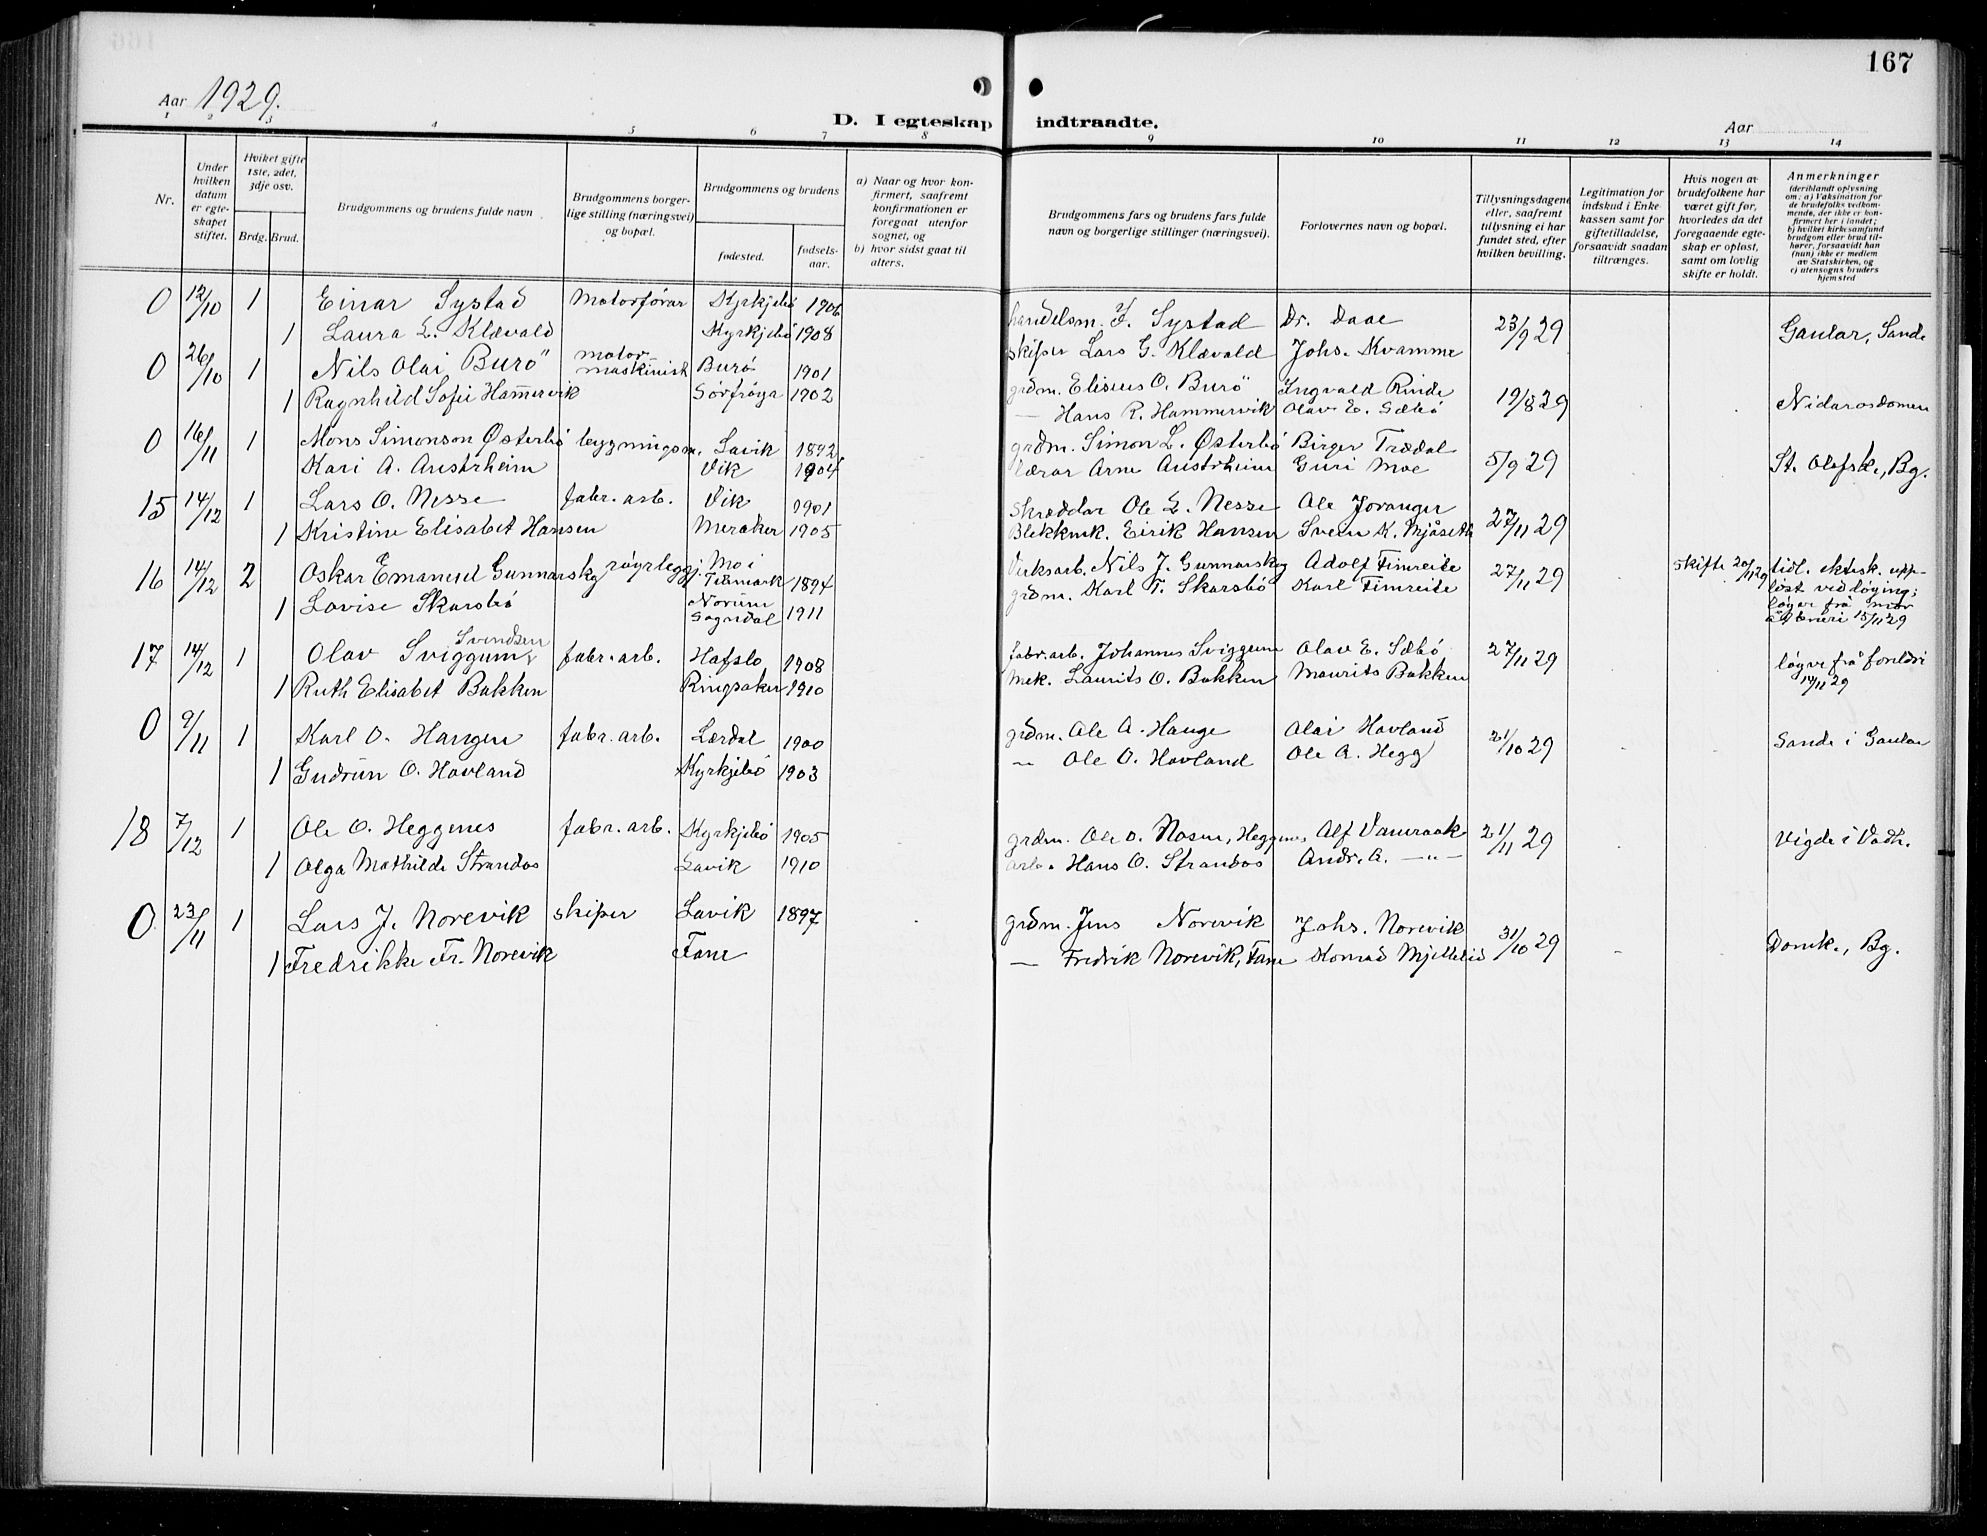 167
Aar 1929.
D. I egteskap indtraadte.
Aar
1 2 3 4 5 6 7 8 9 10 11 12 13 14
Nr.
Under hvilken datum er egteskapet stiftet.
Hvilket gifte 1ste, 2det, 3dje osv.
Brdg. Brud.
Brudgommens og brudens fulde navn
Brudgommens borgerlige stilling (næringsvei) og bopæl.
Brudgommens og brudens
fødested. fødselsaar.
a) Naar og hvor konfirmert, saafremt konfirmationen er foregaat utenfor sognet, og
b) hvor sidst gaat til alters.
Brudgommens fars og brudens fars fulde navn og borgerlige stillinger (næringsvei).
Forlovernes navn og bopæl.
Tillysningsdagene eller, saafremt tillysning ei har fundet sted, efter hvilken bevilling.
Legitimation for indskud i Enkekassen samt for giftetilladelse, forsaavidt saadan tiltrænges.
Hvis nogen av brudefolkene har været gift før, hvorledes da det foregaaende egteskap er opløst, samt om lovlig skifte er holdt.
Anmerkninger
(deriblandt oplysning om: a) Vaksination for de brudefolks vedkommende, der ikke er konfirmert her i landet; b) hvilket kirkesamfund brudgom eller brud tilhører, forsaavidt han (hun) ikke er medlem av Statskirken, og c) utensogns bruders hjemsted
0 12/10 1 Einar Systad Motorførar Kyrkjebø 1906 handelsm. J. Systad Dr. Daae 23/9 29 Gaular, Sande
1 Laura L. Klævold Kyrkjebø 1908 skiper Lars G. Klævold Johs. Kvamme
0 26/10 1 Nils Olai Burö motormaskinist Burö 1901 grdm. Eliseus O. Burö Ingvald Rinde 19/8 29 Nidarosdomen
1 Ragnhild Sofie Hammervik Sørfrøya 1902 — Hans R. Hammervik Olav E. Sæbø
0 16/11 1 Mons Simonson Østerbø byggningsm. Lavik 1892 grdm. Simon L. Østerbø Birger Trædal 5/9 29 St. Olafsk., Bg.
1 Kari A. Austrheim Vik 1904 Lærar Arne Austrheim Guri Moe
15 14/12 1 Lars O. Nesse fabr. arb. Vik 1901 Skreddar Ole L. Nesse Ole Joranger 27/11 29
1 Kristine Elisabet Hansen Meraker 1905 Blekkmk. Eirik Hansen Svein K. Mjåseth
16 14/12 2 Oskar Emanuel Gunnarskog røyrleggj. Mo i Telemark 1894 Verksarb. Nils J. Gunnarskog Adolf Fimreite 27/11 29 skifte 20/11 29 tidl. ektesk. upp-
løst ved løying;
1 Lovise Skarsbø Norum Sogndal 1911 grdm. Karl T. Skarsbø Karl Fimreite løyve frå mor
15/11 29
17 14/12 1 Olav Svendsen Sviggum fabr. arb. Hafslo 1908 fabr. arb. Johannes Sviggum Olav E. Sæbø 27/11 29 løyve frå foreldri
14/11 29
1 Ruth Elisabet Bakken Ringsaker 1910 Mek. Laurits O. Bakken Maurits Bakken
0 9/11 1 Karl O. Haugen fabr. arb. Lærdal 1900 grdm. Ole A. Hauge Olai Hovland 21/10 29 Sande i Gaular
1 Gudrun O. Hovland Kyrkjebø 1903 — Ole O. Hovland Ole A. Hegg
18 7/12 1 Ole O. Heggenes fabr. arb. Kyrkjebø 1905 grdm. Ole O. Nosen, Heggenes Alf Vamraak 21/11 29 Vigde i Vadh.
1 Olga Mathilde Strandos Lavik 1910 arb. Hans O. Strandos Andr. A. —„—
0 23/11 1 Lars J. Norevik skiper Lavik 1897 grdm. Jens Norevik Johs. Norevik 31/10 29 Domk., Bg.
1 Fredrikke Fr. Norevik Fane — Fredrik Norevik, Fane Konrad Mjelleid